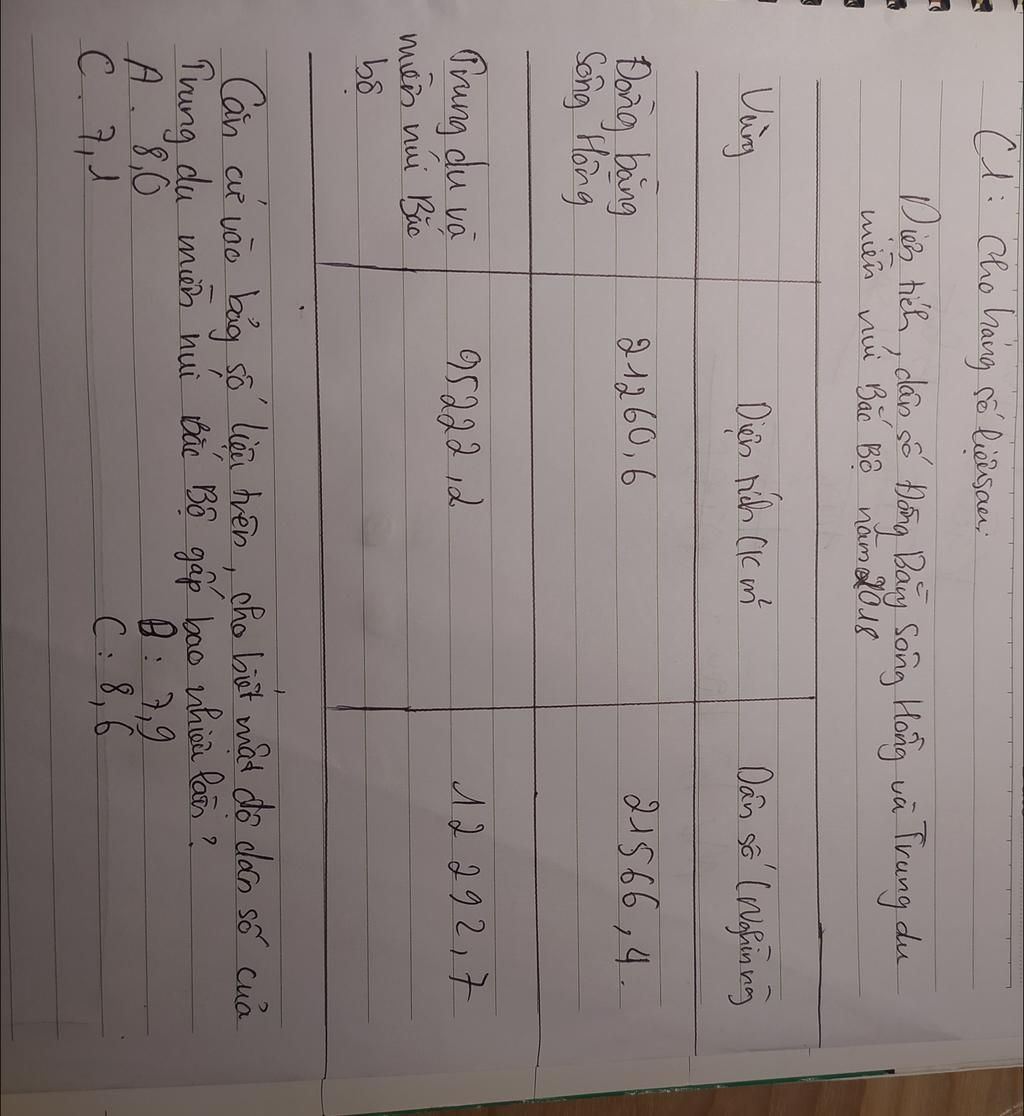 C1: Cho bảng số liệu sau:
Diện tích, dân số Đồng Bằng Sông Hồng và Trung du
miền núi Bắc Bộ năm 2018
Vùng Diện tích (Km² Dân số (Nghìng
Đồng bằng 21260,6 21566,4.
Sông Hồng
Trung du và 95222,2 12292,7
miền núi Bắc
bộ
Căn cứ vào bảng số liệu trên, cho biết mật độ dân số của
Trung du miền núi Bắc Bộ gấp bao nhiêu lần?
A. 8,0 B: 7,9
C. 7,1 C: 8,6